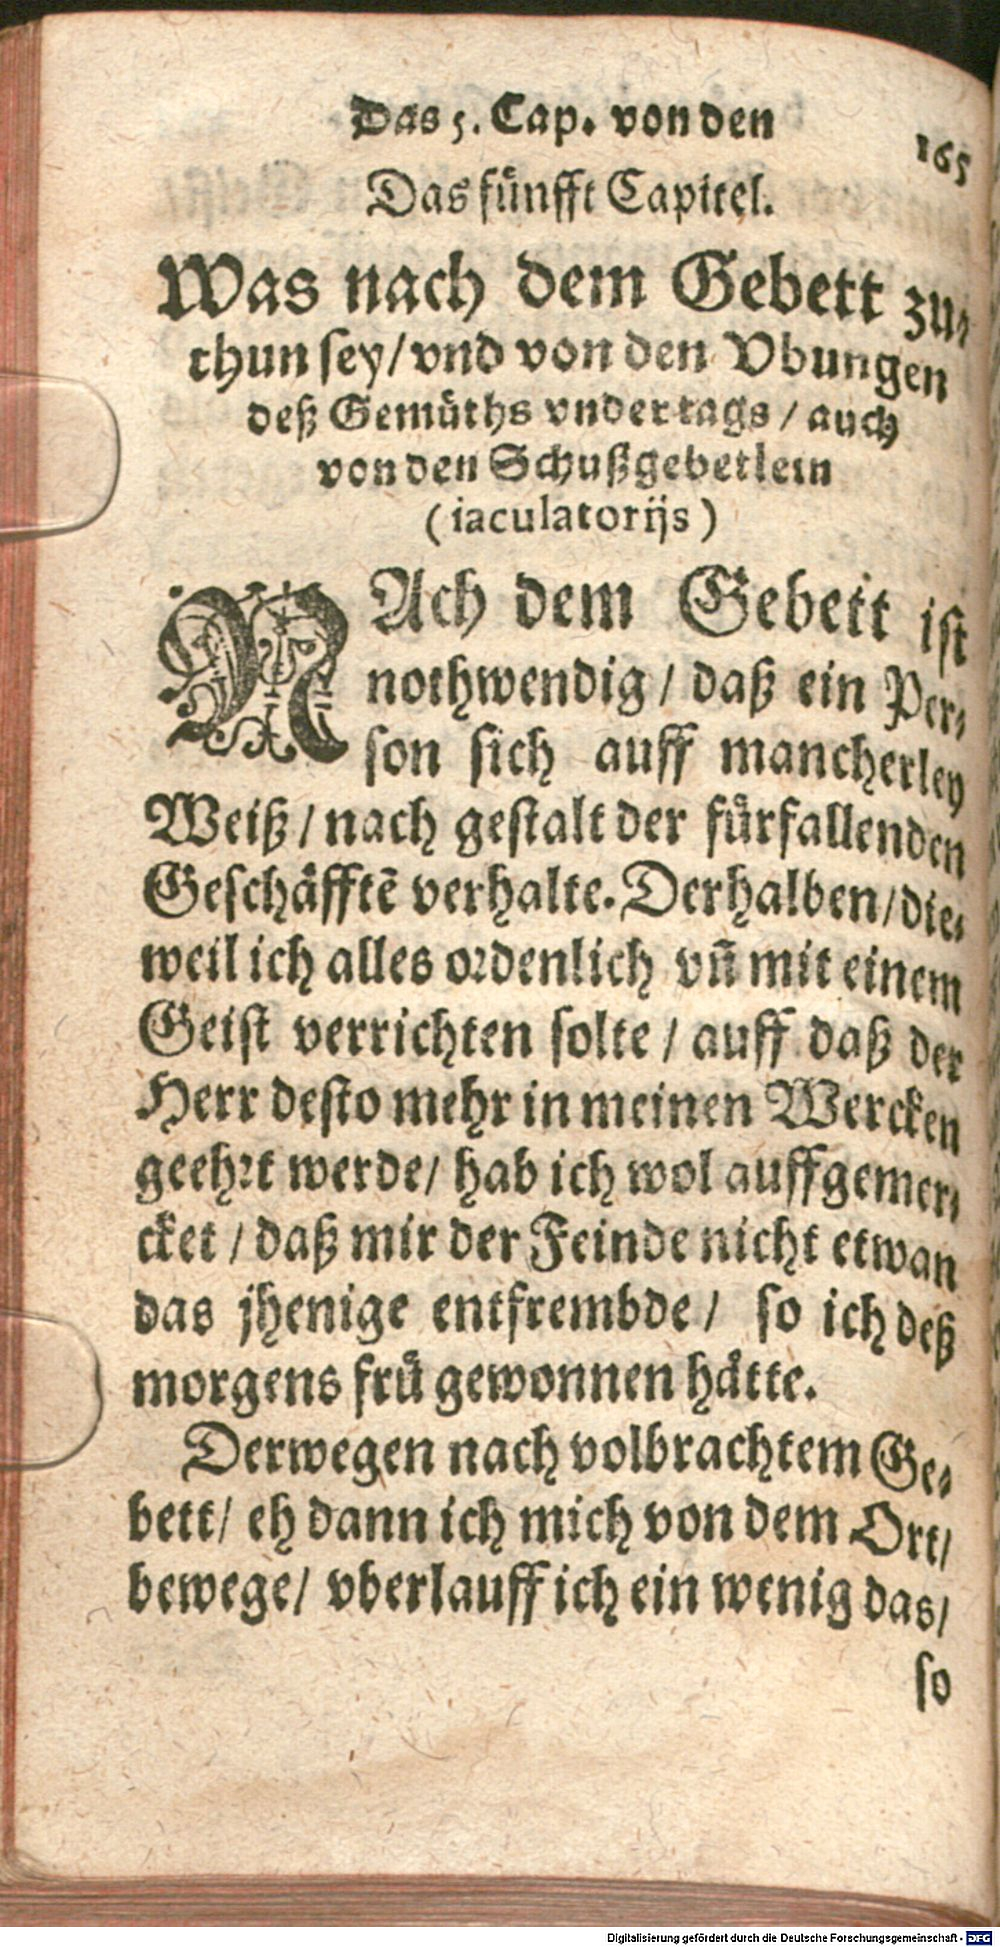 Das 5. Cap. von den
165
Das fünfft Capitel.
Was nach dem Gebett zu-
thun sey/ vnd von den Vbungen
deß Gemüths vndertags / auch
von den Schußgebetlein
(iaculatorijs)
NAch dem Gebett ist
nothwendig / daß ein Per-
son sich auff mancherley
Weiß / nach gestalt der fürfallenden
Geschäfftē verhalte. Derhalben/ die-
weil ich alles ordenlich vñ mit einem
Geist verrichten solte / auff daß der
Herr desto mehr in meinen Wercken
geehrt werde/ hab ich wol auffgemer-
cket / daß mir der Feinde nicht etwan
das jhenige entfrembde / so ich deß
morgens frü gewonnen hätte.
Derwegen nach volbrachtem Ge-
bett/ eh dann ich mich von dem Ort/
bewege/ vberlauff ich ein wenig das/
so
Digitalisierung gefördert durch die Deutsche Forschungsgemeinschaft - DFG